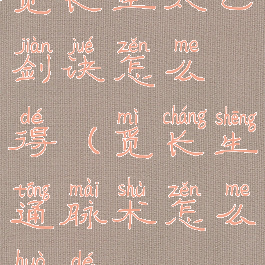 jiàn jué zěn me
剑诀怎么
dé mì cháng shēng
得(觅长生
tōng mài shù zěn me
通脉术怎么
huò dé